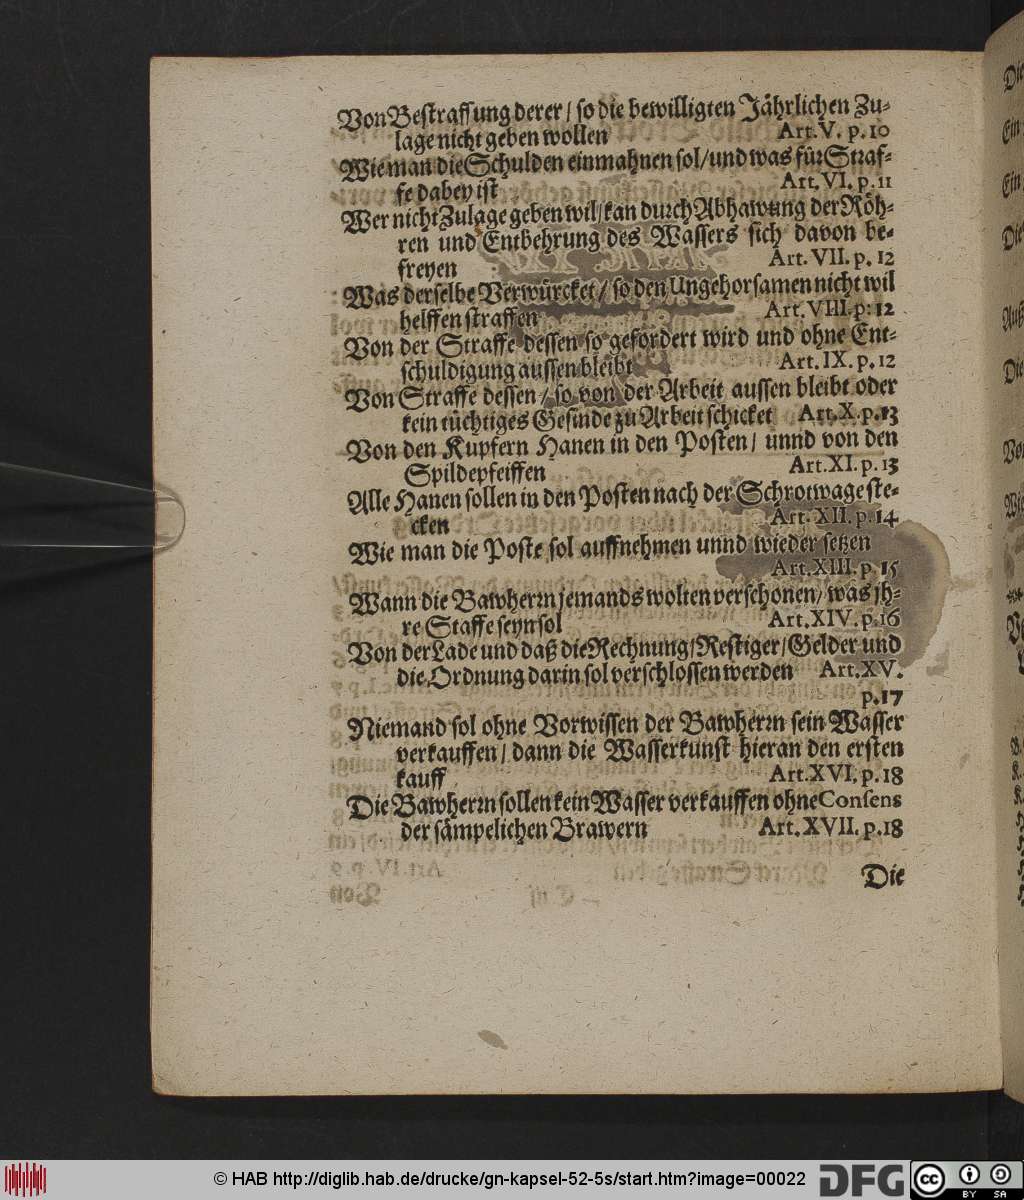 Von Bestraffung derer / so die bewilligten Jährlichen Zu-
lage nicht geben wollen Art. V. p. 10
Wie man die Schulden einmahnen sol / und was für Straf-
fe dabey ist Art. VI. p. 11
Wer nicht Zulage geben wil / kan durch Abhawung der Röh-
ren und Entbehrung des Wassers sich davon be-
freyen Art. VII. p. 12
Was derselbe Verwürcket / so den Ungehorsamen nicht wil
helffen straffen Art. VIII. p: 12
Von der Straffe dessen so gefordert wird und ohne Ent-
schuldigung aussen bleibt Art. IX. p. 12
Von Straffe dessen / so von der Arbeit aussen bleibt oder
kein tüchtiges Gesinde zu Arbeit schicket Art. X. p. 13
Von den Kupfern Hanen in den Posten / unnd von den
Spildepfeiffen Art. XI. p. 13
Alle Hanen sollen in den Posten nach der Schrotwage ste-
cken Art. XII. p. 14
Wie man die Poste sol auffnehmen unnd wieder setzen
Art. XIII. p. 15
Wann die Bawherrn jemands wolten verschonen / was jh-
re Staffe seyn sol Art. XIV. p. 16
Von der Lade und daß die Rechnung / Restiger / Gelder und
die Ordnung darin sol verschlossen werden Art. XV.
p. 17
Niemand sol ohne Vorwissen der Bawherrn sein Wasser
verkauffen / dann die Wasserkunst hieran den ersten
kauff Art. XVI. p. 18
Die Bawherrn sollen kein Wasser verkauffen ohne Consens
der sämpelichen Brawern Art. XVII. p. 18
Die
© HAB http://diglib.hab.de/drucke/gn-kapsel-52-5s/start.htm?image=00022
DFG
cc BY SA